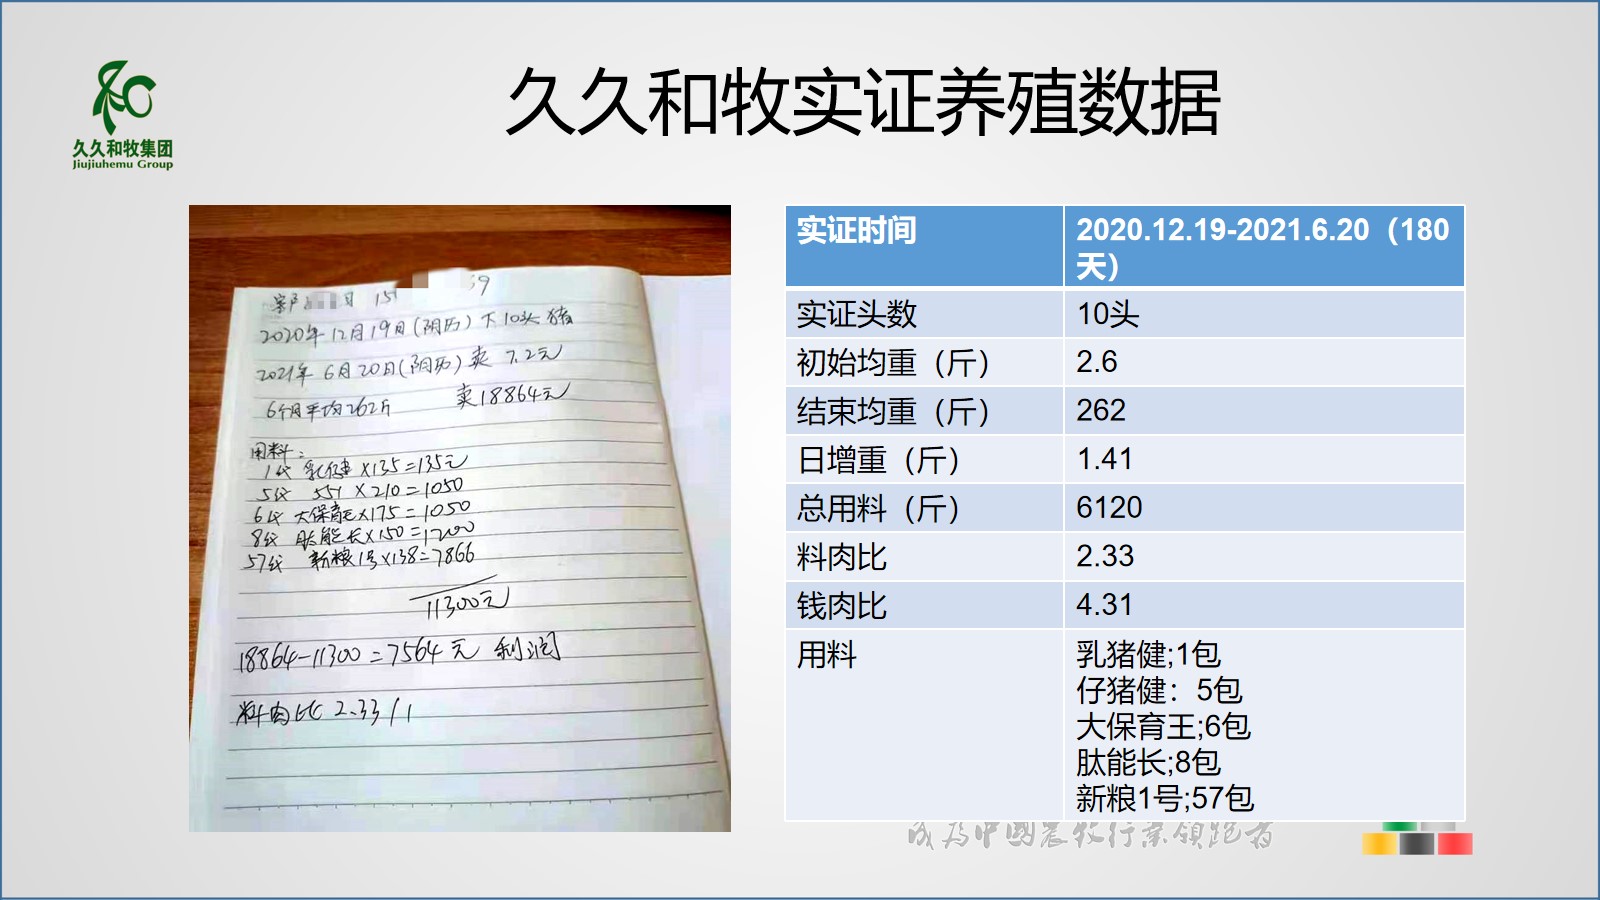 久久和牧集团
Jiujiuhemu Group
久久和牧实证养殖数据
客户
日 15
59
2020年12月19日(阴历)下10头猪
2021年6月20日(阴历)卖 7.2元
6个月平均262斤 卖18864元
用料:
1代 乳猪健×135=135元
5代 551×210=1050
6代 大保育王×175=1050
8代 肽能长×150=1200
57代 新粮1号×138=7866
11300元
18864-11300=7564元 利润
料肉比 2.33/1
实证时间 2020.12.19-2021.6.20（180
天）
实证头数 10头
初始均重（斤） 2.6
结束均重（斤） 262
日增重（斤） 1.41
总用料（斤） 6120
料肉比 2.33
钱肉比 4.31
用料 乳猪健;1包
仔猪健：5包
大保育王;6包
肽能长;8包
新粮1号;57包
成为中國農牧行業領跑者